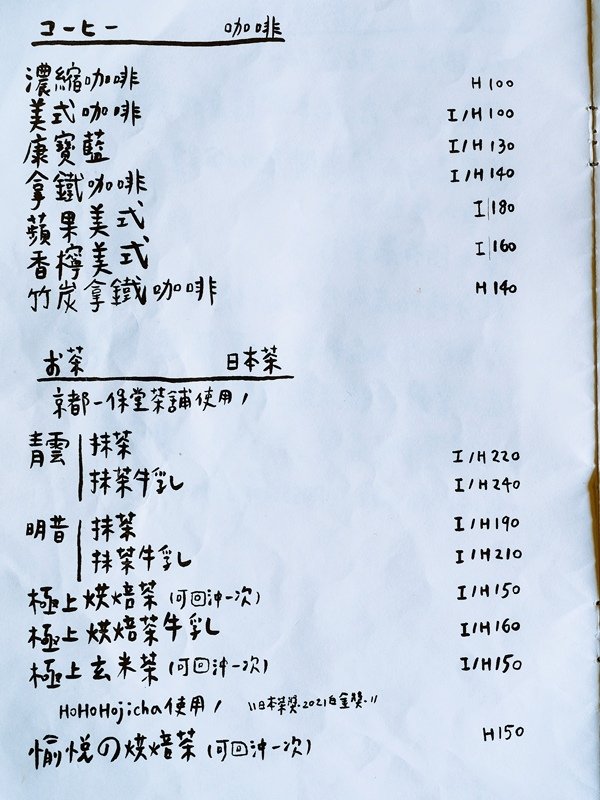 コーヒー 咖啡
濃縮咖啡 H 100
美式咖啡 I/H 100
康寶藍 I/H 130
拿鐵咖啡 I/H 140
蘋果美式 I 180
香檸美式 I 160
竹炭拿鐵咖啡 H 140
お茶 日本茶
京都一保堂茶舖使用!
青雲 抹茶 I/H 220
抹茶牛乳 I/H 240
明昔 抹茶 I/H 190
抹茶牛乳 I/H 210
極上烘焙茶(可回沖一次) I/H 150
極上烘焙茶牛乳 I/H 160
極上玄米茶(可回沖一次) I/H 150
HoHoHojicha使用! \\日本茶獎・2021白金獎・//
愉悅の烘焙茶(可回沖一次) H 150